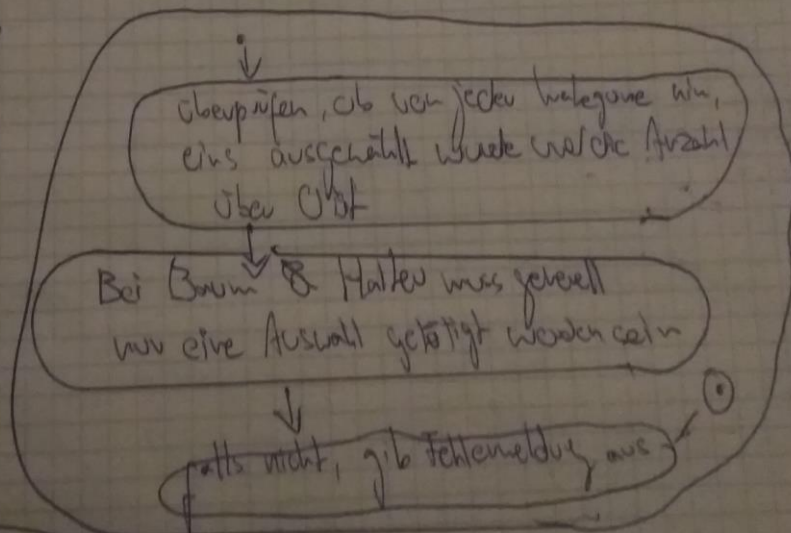 überprüfen, ob von jeder Kategorie min,
eins ausgewählt wurde welche Anzahl
über
Bei Baum & Halter muss generell
nur eine Auswahl getätigt worden sein
falls nicht, gib Fehlermeldung aus